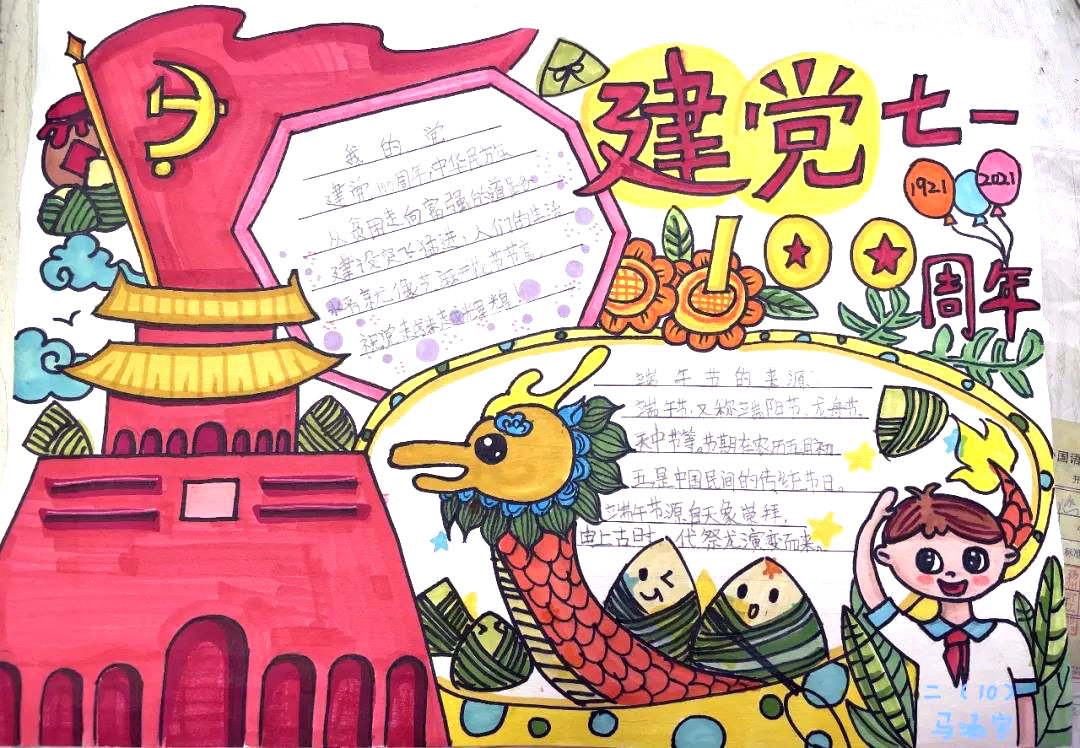 建党七一
1921
2021
100
周年
我的党
建党100周年,中华民族
从贫困走向富强的道
建设突飞猛进,人们的生活
像芝麻开花节节高
祝党
端午节的来源
端午节,又称端阳节、龙舟节、
天中节等。节期在农历五月初
五,是中国民间的传统节日。
端午节源自天象崇拜,
由上古时代祭龙演变而来。
二(10)
马涵宇